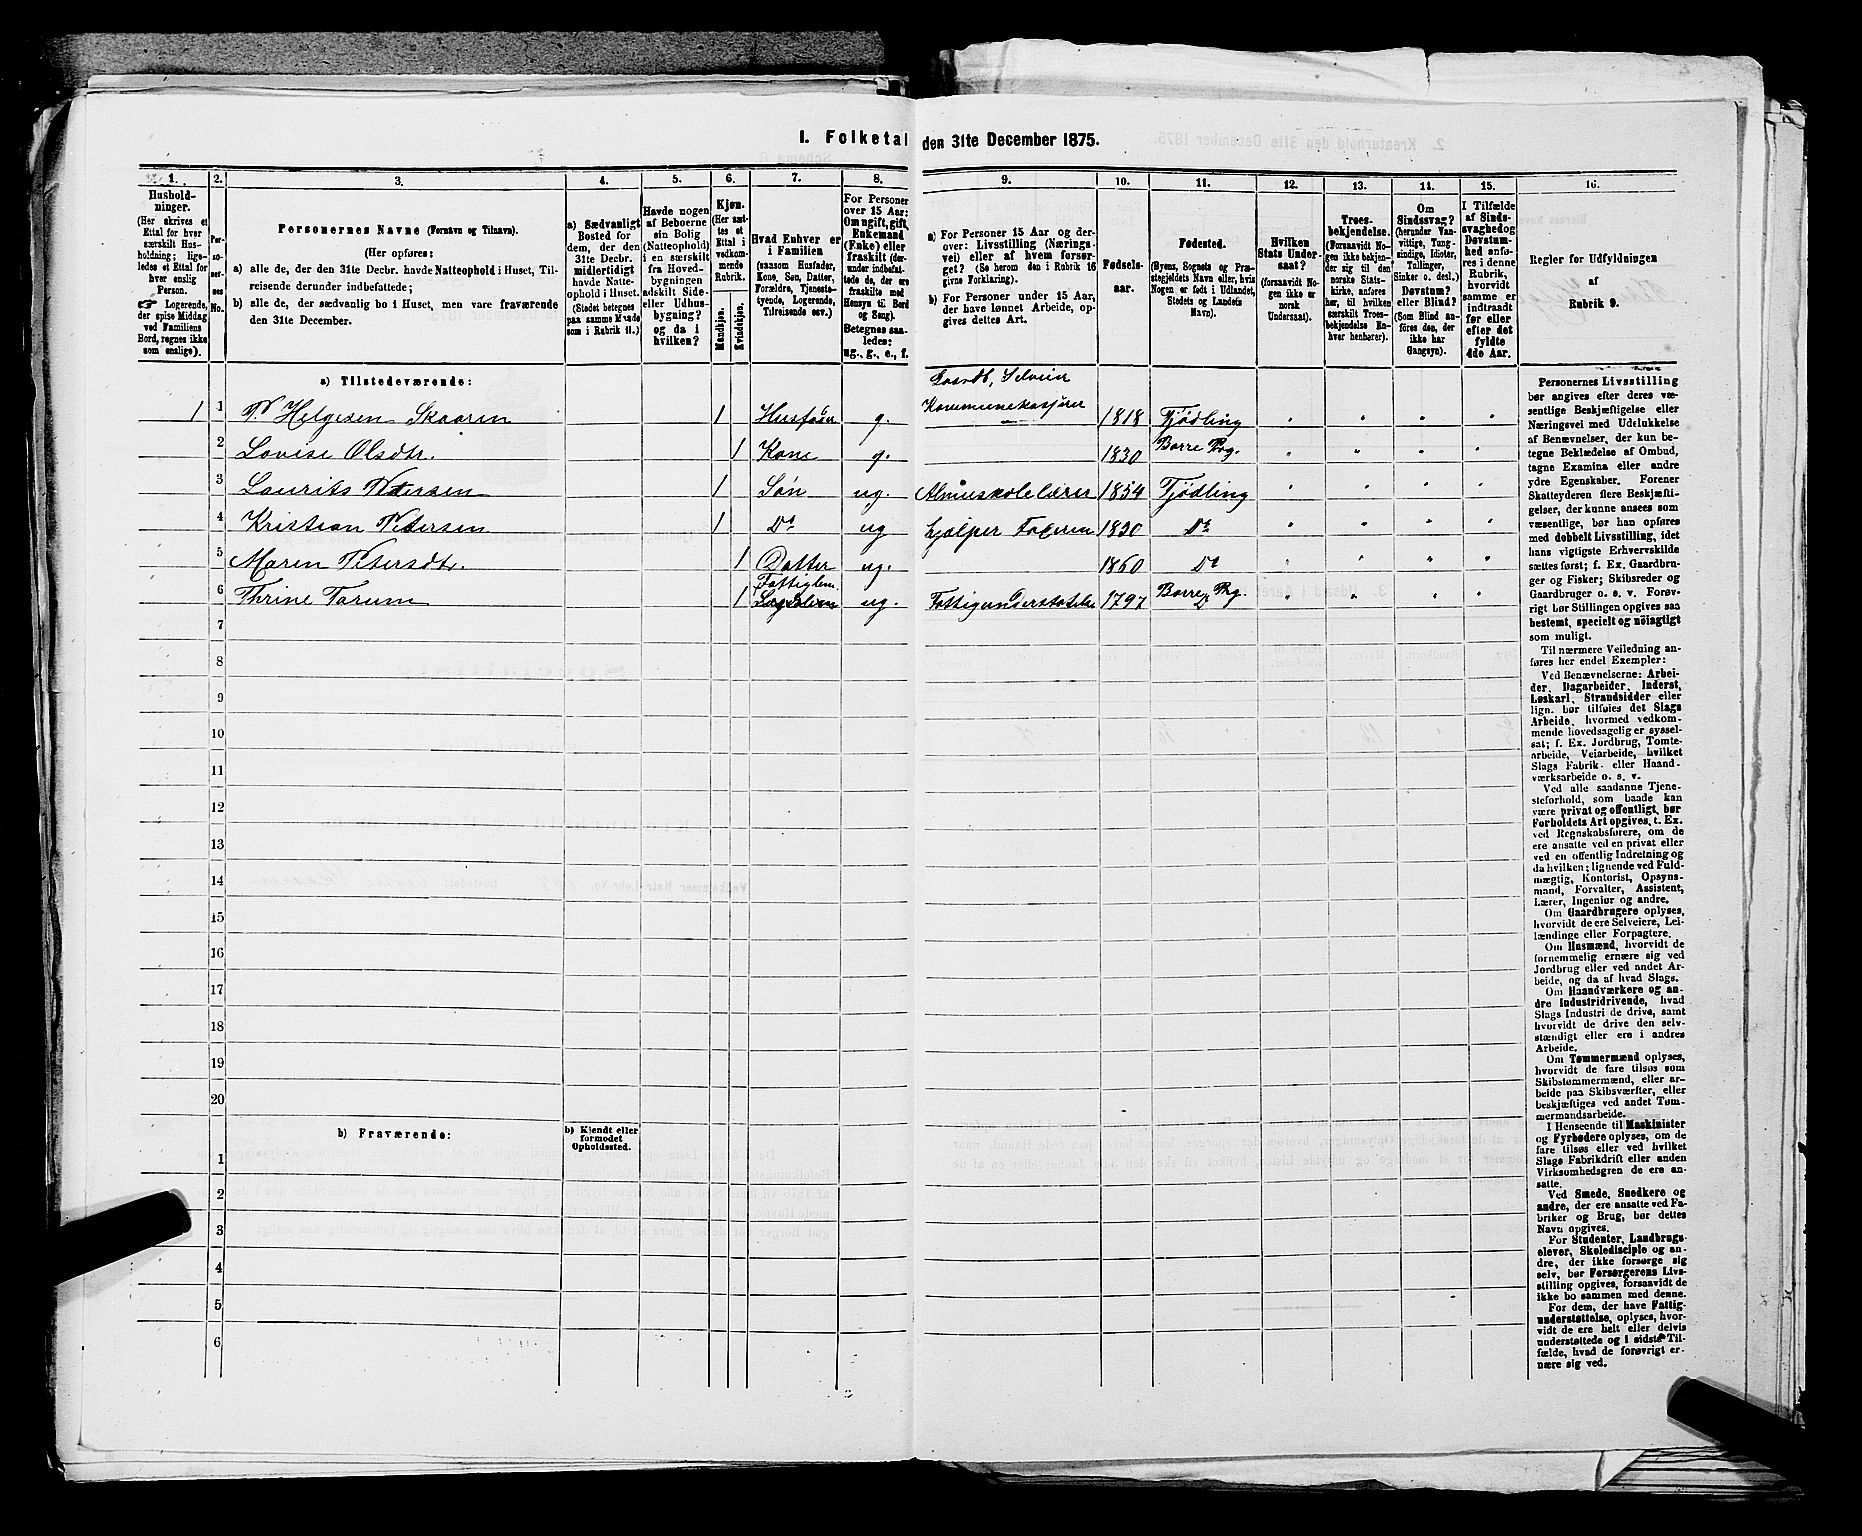 I. Folketal den 31te December 1875.
1. 2. 3. 4. 5. 6. 7. 8. 9. 10. 11. 12. 13. 14. 15. 16.
Hushold-
ninger.
(Her skrives et
Ettal for hver
særskilt Hus-
holdning; lige-
ledes et Ettal for
hver enslig
Person.
☛ Logerende,
der spise Middag
ved Familiens
Bord, regnes ikke
som enslige).
Per-
so-
ner-
nes
No.
Personernes Navne (Fornavn og Tilnavn).
(Her opføres:
a) alle de, der den 31te Decbr. havde Natteophold i Huset, Til-
reisende derunder indbefattede;
b) alle de, der sædvanlig bo i Huset, men vare fraværende
den 31te December.
a) Sædvanligt
Bosted for
dem, der den
31te Decbr.
midlertidigt
havde Natte-
ophold i Huset.
(Stedet betegnes
paa samme Maade
som i Rubrik 11.)
Havde nogen
af Beboerne
sin Bolig
(Natteophold)
i en særskilt
fra Hoved-
bygningen
adskilt Side-
eller Udhus-
bygning?
og da i
hvilken?
Kjøn.
(Her sæt-
tes et
Ettal i
vedkom-
mende
Rubrik.
Mandkjøn.
Kvindekjøn.
Hvad Enhver er
i Familien
(saasom Husfader,
Kone, Søn, Datter,
Forældre, Tjeneste-
tyende, Logerende,
Tilreisende osv.)
For Personer
over 15 Aar:
Om ugift, gift,
Enkemand
(Enke) eller
fraskilt (der-
under indbefat-
tede de, der ere
fraskilte med
Hensyn til Bord
og Seng).
Betegnes saa-
ledes:
ug., g., e., f.
a) For Personer 15 Aar og der-
over: Livsstilling (Nærings-
vei) eller af hvem forsør-
get? (Se herom den i Rubrik 16
givne Forklaring).
b) For Personer under 15 Aar,
der have lønnet Arbeide, op-
gives dettes Art.
Fødsels-
aar.
Fødested.
(Byens, Sognets og Præ-
stegjeldets Navn eller, hvis
Nogen er født i Udlandet,
Stedets og Landets
Navn).
Hvilken
Stats Under-
saat?
(forsaavidt No-
gen ikke er
norsk
Undersaat).
Troes-
bekjendelse.
(Forsaavidt No-
gen ikke bekjen-
der sig til den
norske Stats-
kirke, anføres
her, til hvilken
særskilt Troes-
bekjendelse En-
hver henhører).
Om
Sindssvag?
(herunder Van-
vittige, Tung-
sindige, Idioter,
Tullinger,
Sinker o. desl.)
Døvstum?
eller Blind?
(Som Blind an-
føres den, der
ikke har
Gangsyn).
I Tilfælde
af Sinds-
svaghed og
Døvstum-
hed anfø-
res i denne
Rubrik,
hvorvidt
samme er
indtraadt
før eller
efter det
fyldte
4de Aar.
Regler for Udfyldningen
af
Rubrik 9.
a) Tilstedeværende:
1 1 P. Helgesen Skaaren 1 Husfader g. Gaardb, Selveier Kommunekasjerer 1818 Tjødling " " " "
2 Lovise Olsdtr. 1 Kone g. 1830 Borre Prg. " " " "
3 Laurits Petersen 1 Søn ug. Almuskolelærer 1854 Tjødling " " " "
4 Kristian Petersen 1 Do ug hjælper Faderen 1830 Do " " " "
5 Maren Petersdtr. 1 Datter ug. 1860 Do " " " "
6 Thrine Tarum 1 Fattiglem ug. Fattigunderstøttelse 1797 Borre Prg. " " " "
7
8
9
10
11
12
13
14
15
16
17
18
19
20
b) Fraværende:
b) Kjendt eller
formodet
Opholdssted.
1
2
3
4
5
6
Personernes Livsstilling
bør angives efter deres væ-
sentlige Beskjæftigelse eller
Næringsvei med Udelukkelse
af Benævnelser, der kun be-
tegne Beklædelse af Ombud,
tagne Examina eller andre
ydre Egenskaber. Forener
Skatteyderen flere Beskjæfti-
gelser, der kunne ansees som
væsentlige, bør han opføres
med dobbelt Livsstilling, idet
hans vigtigste Erhvervskilde
sættes først; f. Ex. Gaardbru-
ger og Fisker; Skibsreder og
Gaardbruger o. s. v. Forøv-
rigt bør Stillingen opgives saa
bestemt, specielt og nøiagtigt
som muligt.
Til nærmere Veiledning an-
føres her endel Exempler:
Ved Benævnelserne: Arbei-
der, Dagarbeider, Inderst,
Løskarl, Strandsidder eller
lign. bør tilføies det Slags
Arbeide, hvormed vedkom-
mende hovedsagelig er syssel-
sat; f. Ex. Jordbrug, Tomte-
arbeide, Veiarbeide, hvilket
Slags Fabrik- eller Haand-
værksarbeide o. s. v.
Ved alle saadanne Tjene-
steforhold, som baade kan
være privat og offentligt, bør
Forholdets Art opgives, t. Ex.
ved Regnskabsførere, om de
ere ansatte ved en privat eller
ved en offentlig Indretning og
da hvilken; lignende ved Fuld-
mægtig, Kontorist, Opsyns-
mand, Forvalter, Assistent,
Lærer, Ingeniør og andre.
Om Gaardbrugere oplyses,
hvorvidt de ere Selveiere, Lei-
lændinge eller Forpagtere.
Om Husmænd, hvorvidt de
fornemmelig ernære sig ved
Jordbrug eller ved andet Ar-
beide, og da af hvad Slags.
Om Haandværkere og an-
dre Industridrivende, hvad
Slags Industri de drive, samt
hvorvidt de drive den selv-
stændigt eller ere i andres
Arbeide.
Om Tømmermænd oplyses,
hvorvidt de fare tilsøs som
Skibstømmermænd, eller ar-
beide paa Skibsværfter, eller
beskjæftiges ved andet Tøm-
mermandsarbeide.
I Henseende til Maskinister
og Fyrbødere oplyses, om de
fare tilsøs eller ved hvilket
Slags Fabrikdrift eller anden
Virksomhedsgren de ere an-
satte.
Ved Smede, Snedkere og
andre, der ere ansatte ved Fa-
briker og Brug, bør dettes
Navn opgives.
For Studenter, Landbrugs-
elever, Skoledisciple og an-
dre, der ikke forsørge sig
selv, bør Forsørgerens Livs-
stilling opgives, forsaavidt de
ikke bo sammen med denne.
For dem, der have Fattig-
understøttelse, oplyses, hvor-
vidt de ere helt eller delvis
understøttede og i sidste Til-
fælde, hvad de forøvrigt er-
nære sig ved.